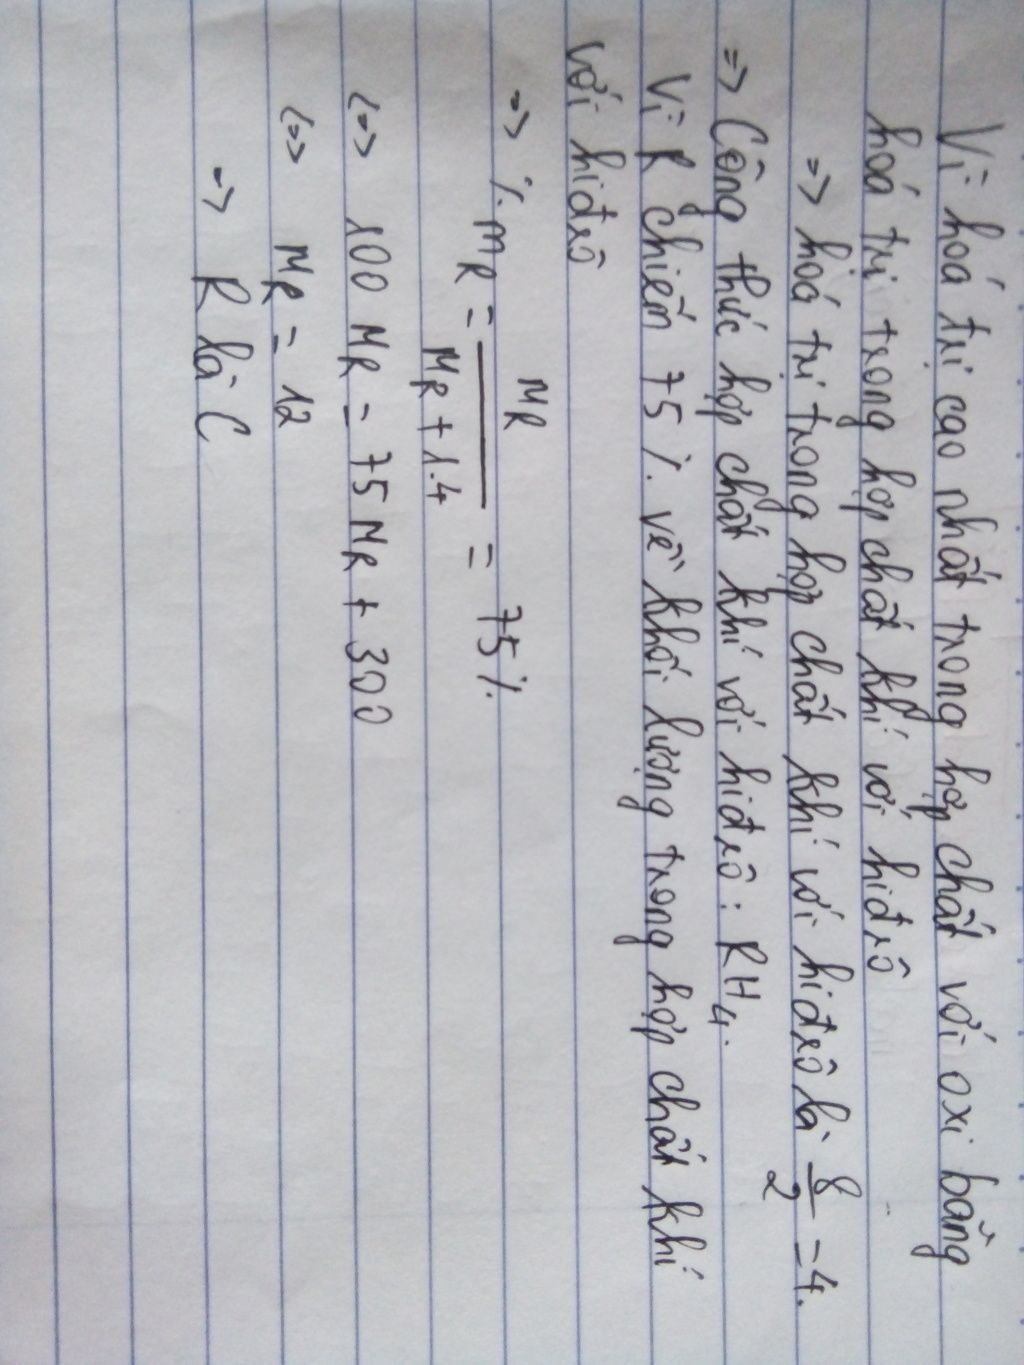 Vì hoá trị cao nhất trong hợp chất với oxi bằng
hoá trị trong hợp chất khí với hiđrô
=> hoá trị trong hợp chất khí với hiđrô là 8/2 = 4.
=> Công thức hợp chất khí với hiđrô : RH₄.
Vì R chiếm 75 % về khối lượng trong hợp chất khí
với hiđrô
=> % m_R = M_R / (M_R + 1.4) = 75 %
<=> 100 M_R = 75 M_R + 300
<=> M_R = 12
=> R là C